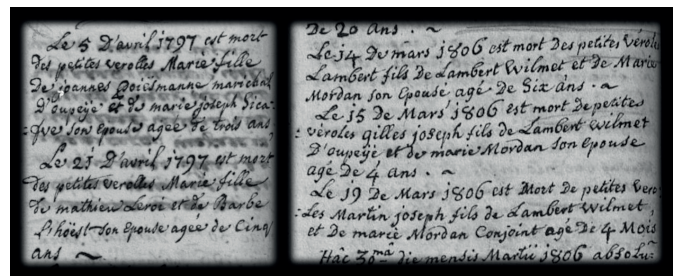 Le 5 D'avril 1797 est mort
des petites verolles Marie fille
De joannes Doielsmanne marichal
D'oupeije et de marie joseph Dica
: que son Epouse agée de trois ans
Le 21 D'avril 1797 est mort
des petites verolles Marie fille
de mathieu Leroi et de Barbe
L'hoest son Epouse agée de Cinq
ans ~
De 20 ans . ~
Le 14 De mars 1806 est mort Des petites véroles
Lambert fils de Lambert Wilmet et de Marie
Mordan son Epouse agé De Six ans . ~
Le 15 De Mars 1806 est mort de petites
véroles gilles joseph fils de Lambert wilmet
D'oupeije et de marie Mordan Son Epouse
agé De 4 ans . ~
Le 19 De Mars 1806 est Mort De petites vero
: Les Martin joseph fils de Lambert Wilmet,
et de marie Mordan Conjoint agé De 4 Mois
Hâc 30na die mensis Martii 1806 absolu-